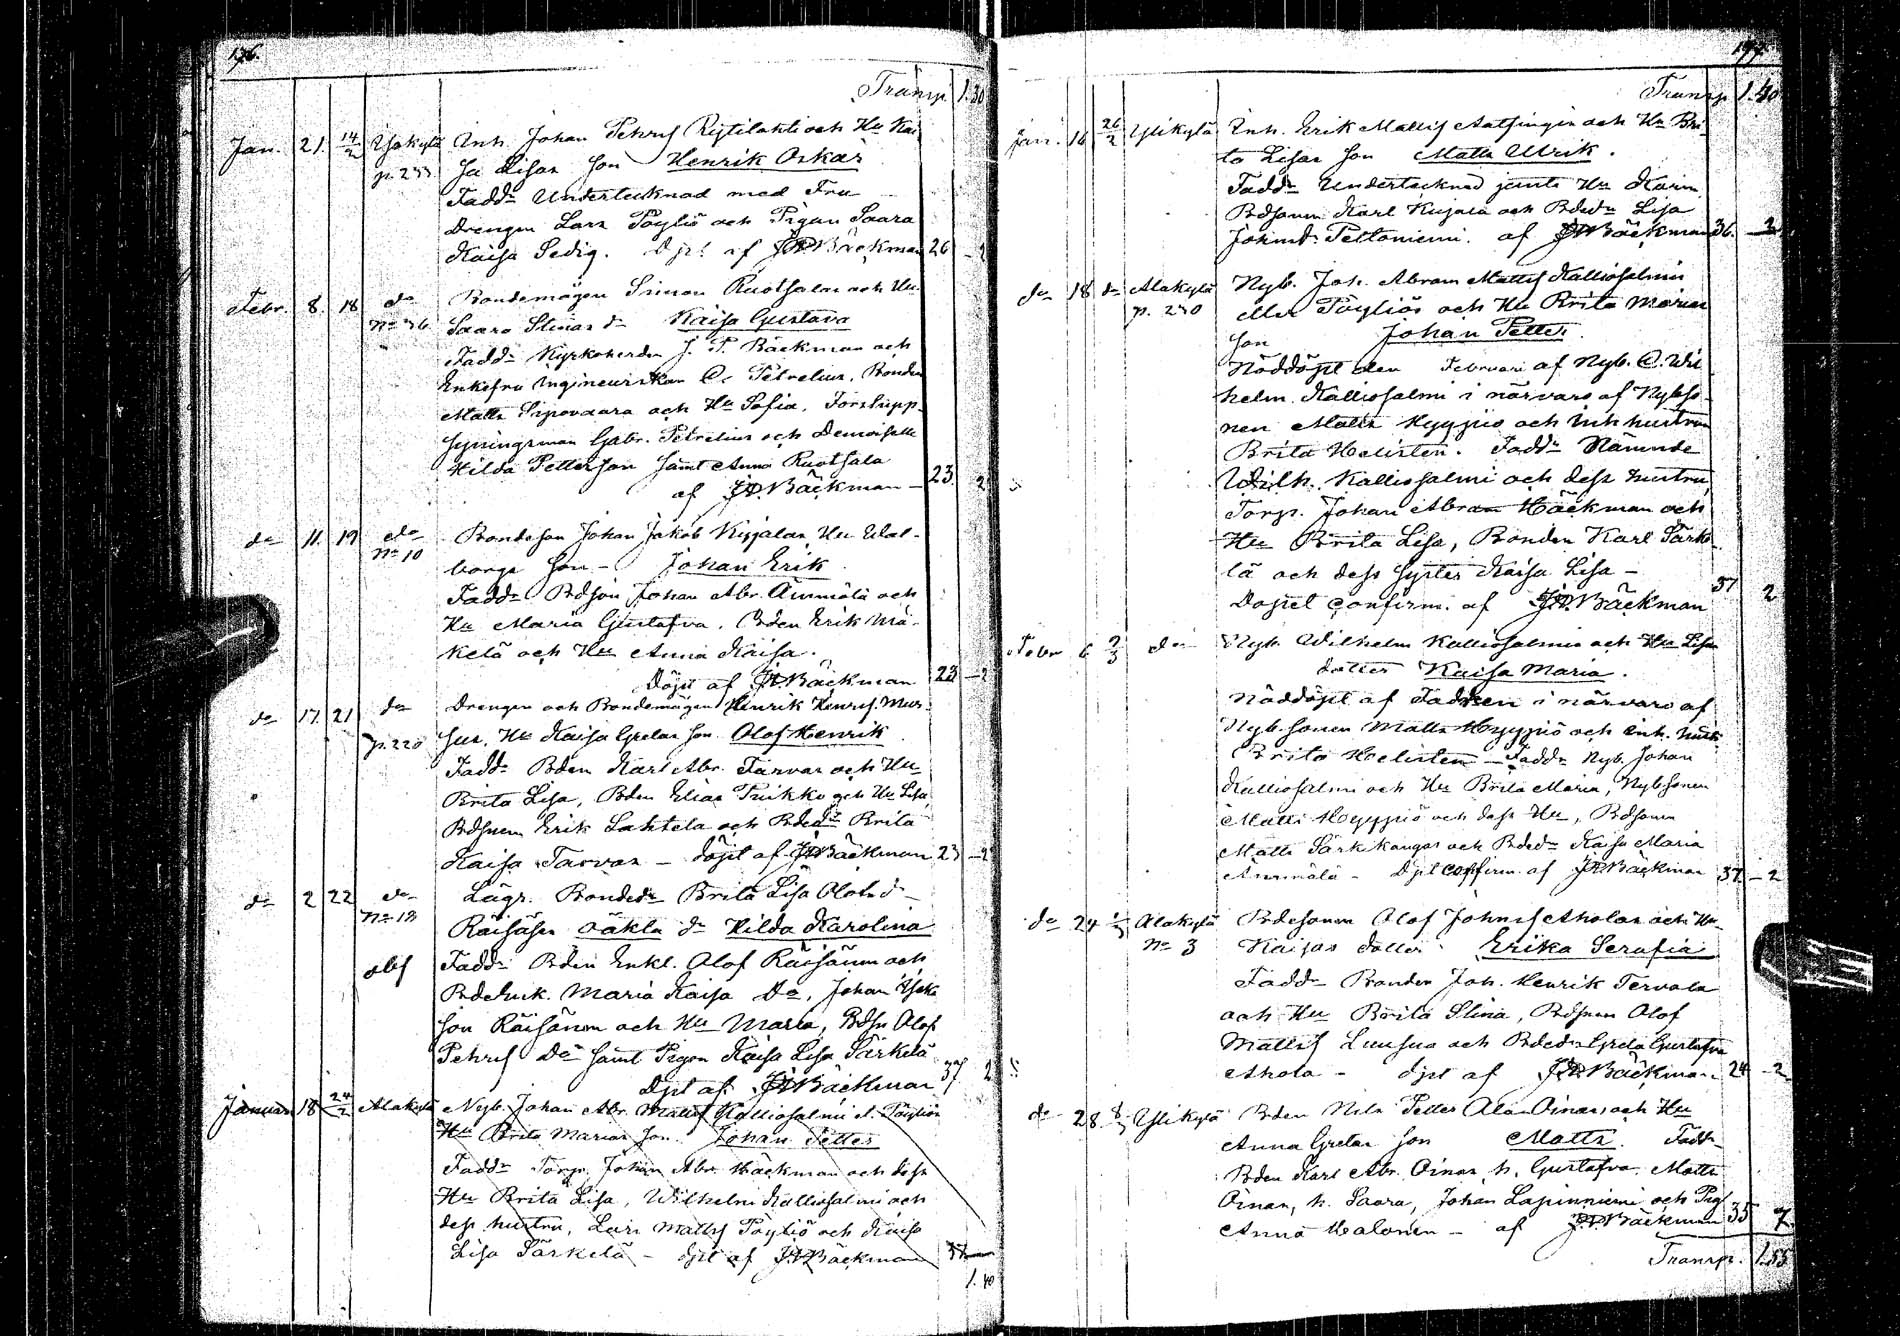 196.
Transp. 1.30
Jan. 21. 14/2 Ylikylä Inh. Johan Petrs och Hu Kai
p. 233 sa Lisas son Henrik Oskar
Fadd. Undertecknad med Fru
Drengen Lars Pöyliö och Pigan Saara
Kaisa Sedig. Dpt af J.P. Bäckman 26 – 2
Febr. 8. 18 do Bondemågen Simon Ruotsalas och Hu
No 36 Saara Stinas dr Kaisa Gustava
Fadd. Kyrkoherden J. P. Bäckman och
Enkefru C. Petrelius, Bonden
Matts Sipovaara och Hu Sofia, Forstupp-
syningsman Gabr. Petrelius och Demoiselle
Hilda Petterson samt Anna Ruotsala
af J.P. Bäckman – 23. 2
do 11. 19 do Bondeson Johan Jakob Hu Wal-
No 10 borgs son – Johan Erik
Fadd. Bdson Johan Abr. Ämmälä och
Hu Maria Gustafva, Bden Erik Mä-
kelä och Hu Anna Kaisa.
Döpt af J.P. Bäckman 23 – 2
do 17. 21 do Drengen och Bondemågen Henrik Henrs. Mur-
p. 220 sus, Hu Kaisa Gretas son Olof Henrik
Fadd. Bden Karl Abr. Tarvas och Hu
Brita Lisa, Bden Elias Puikko och Hu Lisa,
Bdsonen Erik Lahtela och Bdedr Brita
Kaisa Tarvas – döpt af J.P. Bäckman 23 – 2
do 2 22 do Lägr. Bondedr Brita Lisa Olofsdr
No 18 Räisäsen oäkta dr Hilda Karolina
obs Fadd. Bden Enkl. Olof Räisänen och
Bdeenk. Maria Kaisa do, Johan
son Räisänen och Hu Maria, Bdsn Olof
Petrs do samt Pigan Kaisa Lisa Särkelä
Dpt af J.P. Bäckman 37 2
Januari 18 24/2 Alakylä Nyb. Johan Abr. Matts Kalliosalmi el. Pöyliös
Hu Brita Marias son Johan Petter
Fadd. Torp. Johan Abr. Häckman och dess
Hu Brita Lisa, Wilhelm Kalliosalmi och
dess hustru, Lars Matts Pöyliö och Kaisa
Lisa Särkelä – dpt af J.P. Bäckman
1.40
197.
Transp. 1.40
Jan. 16 26/2 Ylikylä Inh. Erik Matts och Hu Bri-
ta Lisas son Matts Ulrik.
Fadd. Undertecknad jemte Hu Karin
Bdsonen Karl Kujala och Bdedr Lisa
Johansdr Peltoniemi. af J.P. Bäckman 36. – 2
do 18 do Alakylä Nyb. Joh. Abram Matts Kalliosalmis
p. 230 eller Pöyliös och Hu Brita Marias
son Johan Petter
Nöddöpt den Februari af Nyb. C. Wil
helm Kalliosalmi i närvaro af Nybso-
nen Matts Hyypiö och inh. hustrun
Brita Helisten. Fadd. Nämnde
Wilh. Kalliosalmi och dess hustru,
Torp. Johan Abram Häckman och
Hu Brita Lisa, Bonden Karl Särke-
lä och dess syster Kaisa Lisa –
Döpet confirm. af J.P. Bäckman 37 2
Febr 6 2/3 do Nyb. Wilhelm Kalliosalmis och Hu Lisas
dotter Kaisa Maria.
Nöddöpt af Fadren i närvaro af
Nyb.sonen Matts Hyypiö och inh. hustr.
Brita Helisten – Fadd. Nyb. Johan
Kalliosalmi och Hu Brita Maria, Nybsonen
Matts Hyypiö och dess Hu, Bdsonen
Matts Särkikangas och Bdedr Kaisa Maria
Ämmälä – Dpt confirm. af J.P. Bäckman 37 – 2
do 24 Alakylä Bdesonen Olof Johns Aholas och Hu
No 3 Kaisas dotter Erika Serafia
Fadd. Bonden Joh. Henrik Tervola
och Hu Brita Stina, Bdsonen Olof
Matts Luusua och Bdedr Greta Gustafva
Ahola – dpt af J.P. Bäckman 24 – 2
do 28. 8/3 Ylikylä Bden Nils Petter Ala Oinas och Hu
Anna Gretas son Matts. Fadd.
Bden Karl Abr. Oinas, h. Gustafva, Matts
Oinas, h. Saara, Johan Lapinniemi och Pig
Anna Halonen – af J.P. Bäckman 35 2
Transp. 1.55